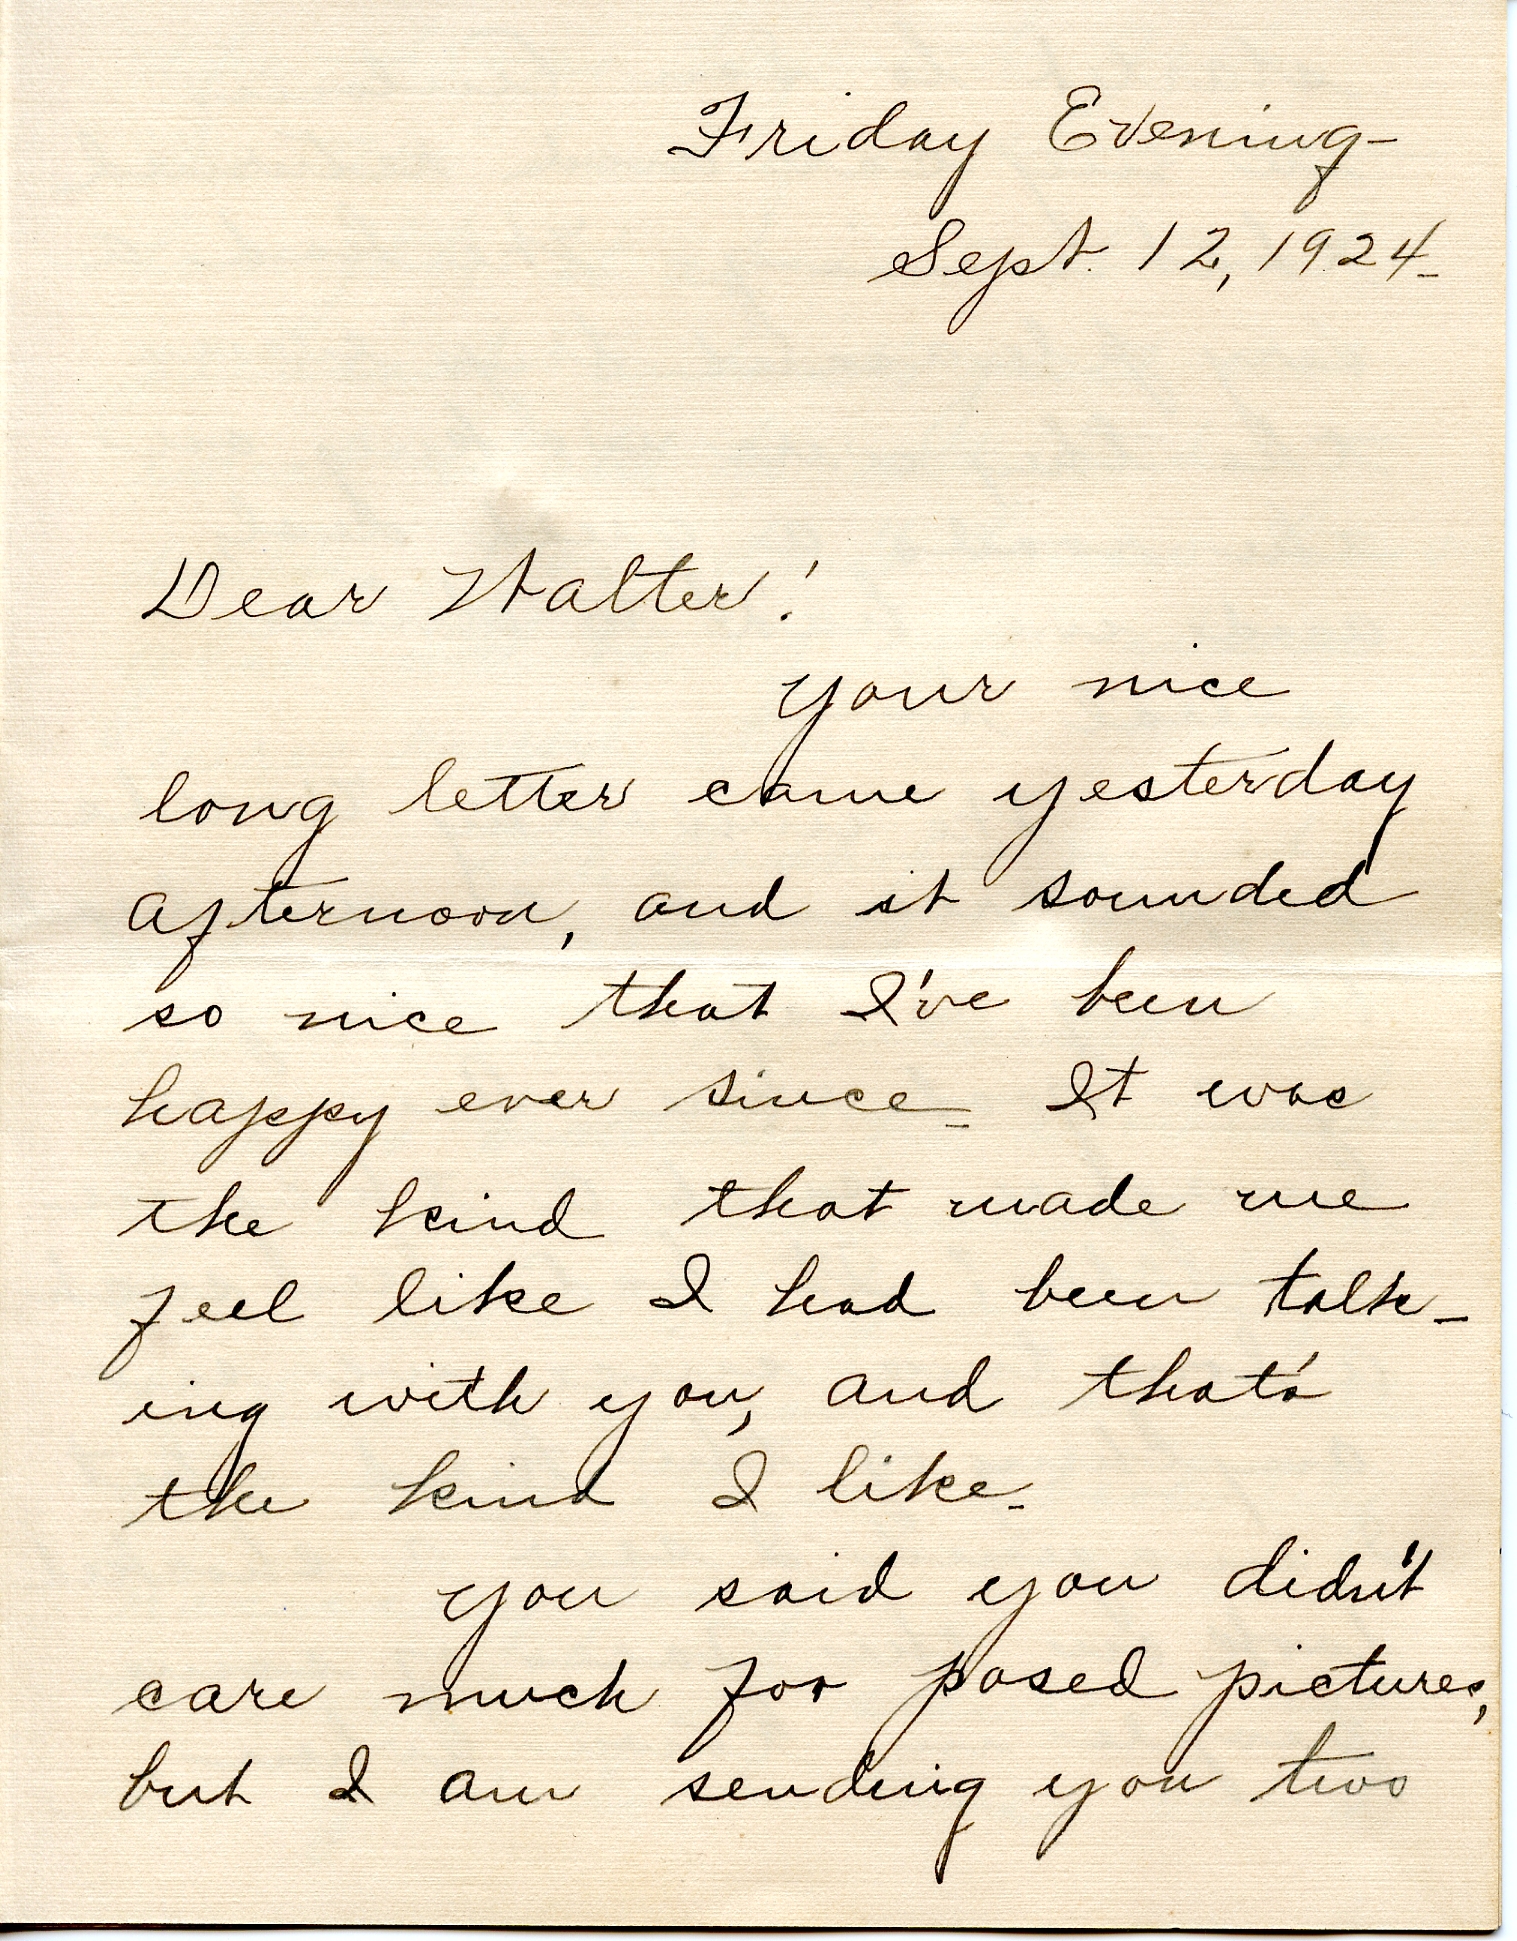 Friday Evening-
Sept. 12, 1924-
Dear Walter!
Your nice
long letter came yesterday
afternoon, and it sounded
so nice that I've been
happy ever since- It was
the kind that made me
feel like I had been talk-
ing with you, and that's
the kind I like-
You said you didn't
care much for posed pictures,
but I am sending you two